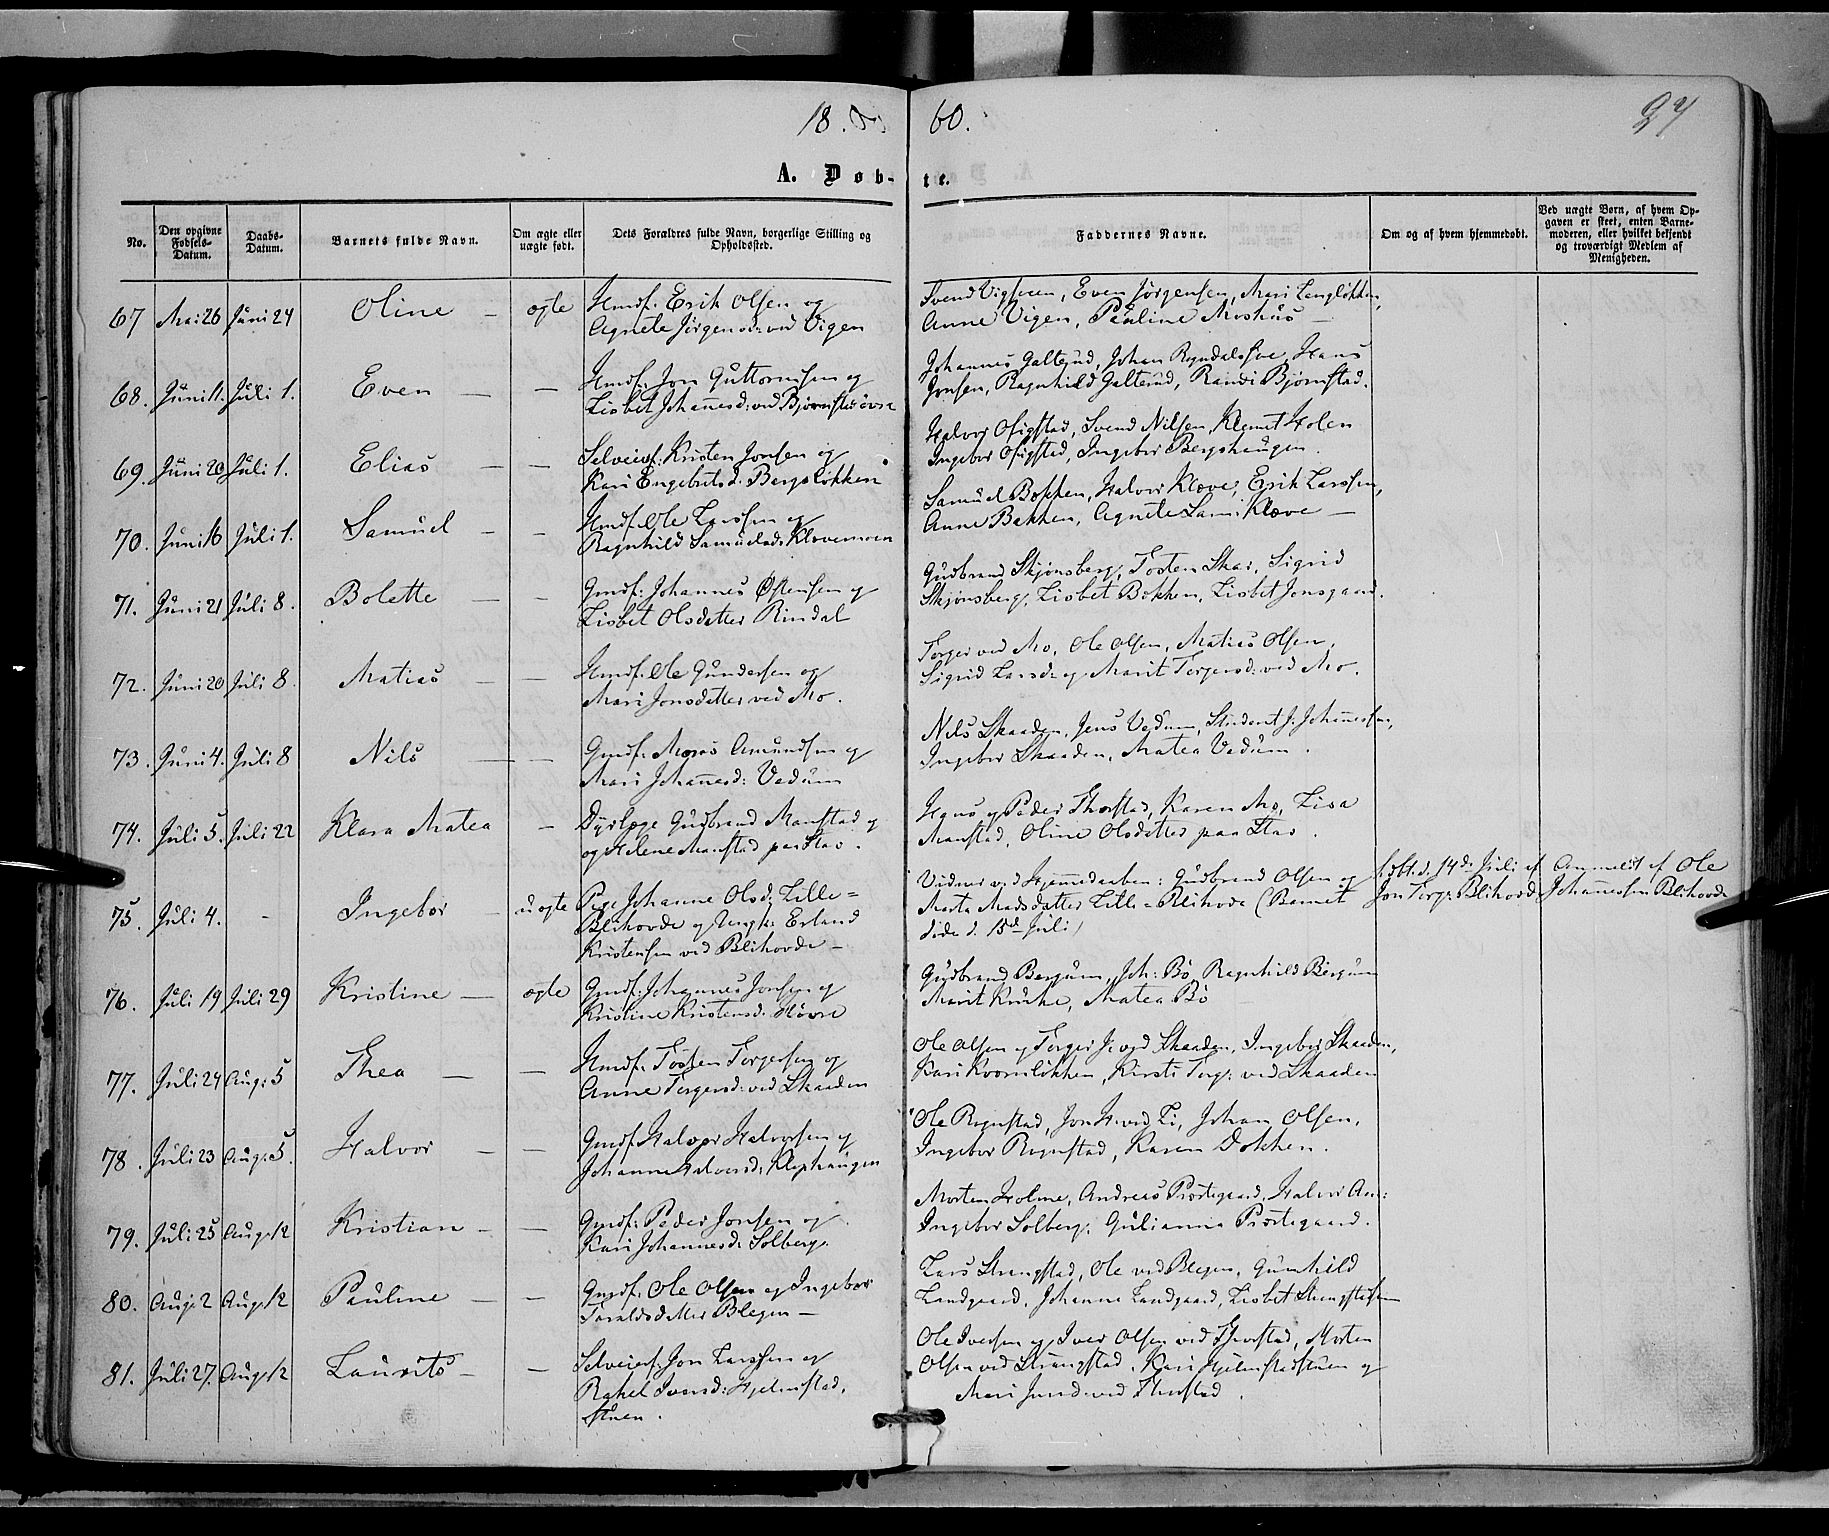 18
60.
A. Døb-
te.
No.
Den opgivne Fødsels-Datum.
Daabs-Datum.
Barnets fulde Navn.
Om ægte eller uægte født.
Dets Forældres fulde Navn, borgerlige Stilling og Opholdssted.
Faddernes Navne.
Om og af hvem hjemmedøbt.
Ved uægte Børn, af hvem Opgaven er skeet, enten Barnemoderen, eller hvilket bekjendt og troværdigt Medlem af Menigheden.
67 Mai 26 Juni 24 Oline — ægte Hmdf: Erik Olsen og
Agnete Jørgensd: ved Vigen
Svend Vigsveen, Even Jørgensen, Mari Langløkken,
Anne Vigen, Pauline Moshus —
68. Juni 11. Juli 1. Even — — Hmdf: Jon Guttormsen og
Lisbet Johannesd: ved Bjørnstad øvre
Johannes Galterud, Johan Ryndalsfve, Hans
Jonsen, Ragnhild Galterud, Randi Bjørnstad.
69. Juni 20 Juli 1. Elias — — Selveierf: Kristen Jonsen og
Kari Engebretsd: Bergsløkken
Halvor Ofigstad, Svend Nilsen, Klemet Holen
Ingebor Ofigstad, Ingebor Bergshaugen.
70. Juni 16 Juli 1. Samuel — — Hmdf: Ole Larssen og
Ragnhild Samuelsd: Klævemoen
Samuel Bakken, Halvor Klæve, Erik Larssen,
Anne Bakken, Agnete Sam: Klæve —
71. Juni 21 Juli 8. Bolette — — Gmdf: Johannes Østensen og
Lisbet Olsdatter Rindal
Gudbrand Skjønsberg, Tosten Skar, Sigrid
Skjønsberg, Lisbet Bakken, Lisbet Jonsgaard.
72. Juni 20 Juli 8. Matias — — Hmdf: Ole Gundersen og
Mari Jonsdatter ved Mo.
Torger ved Mo, Ole Olsen, Matias Olsen,
Sigrid Larsd: og Marit Torgersd: ved Mo.
73. Juni 4. Juli 8 Nils — — Gmdf: Mons Amundsen og
Mari Johannesd: Vedum
Nils Skaaden, Jens Vedum, Student J: Johannessen,
Ingebor Skaaden, Matea Vedum.
74. Juli 5. Juli 22 Klara Matea — Dyrlæge Gudbrand Manstad og
og Helene Manstad paa Stav.
Hans og Peder Thorstad, Karen Mo, Lisa
Manstad, Oline Olsdatter paa Stav.
75. Juli 4. - Ingebor — uægte Pige Johanne Olsd: Lille-
Blihovde og Ungk: Erland
Kristensen ved Blihovde —
Vidner ved Hjemmedaaben: Gudbrand Olsen og
Marta Madsdatter Lille-Blihovde (Barnet
døde d. 15de Juli)
døbt d. 14de Juli af
Jon Torg: Blihovde
Anmeldt af Ole
Johannessen Blihovde
76. Juli 19 Juli 29 Kristine — ægte Gmdf: Johannes Jonsen og
Kristine Kristensd: Høvre
Gudbrand Bergum, Joh: Bø, Ragnhild Bergum
Marit Kirke, Matea Bø
77. Juli 24 Aug: 5 Thea — — Hmdf: Tosten Torgersen og
Anne Torgersd: ved Skaaden
Ole Olsen og Torger J: ved Skaaden, Ingebor Skaaden,
Kari Kvernløkken, Kirsti Torg: ved Skaaden
78. Juli 23 Aug: 5. Halvor — — Gmdf: Halvor Halvorsen og
Johanne Halvorsd: Klephaugen
Ole Rognstad, Jon H: ved Li, Johan Olsen,
Ingebor Rognstad, Karen Dokken.
79. Juli 25 Aug: 12 Kristian — — Gmdf: Peder Jonsen og
Kari Johannesd: Solberg.
Morten Holme, Andreas Prestegaard, Halvor An:
Ingebor Solberg, Gulianna Prestegaard.
80. Aug: 2 Aug: 12 Pauline — — Gmdf: Ole Olsen og Ingebor
Taraldsdatter Blegen —
Lars Strangstad, Ole ved Blegen, Gunhild
Landgaard, Johanne Landgaard, Lisbet Strangstad
81. Juli 27. Aug: 12 Laurits — — Selveierf: Jon Larssen og
Rakel Iversd: Hjelmstad,
stuen.
Ole Iversen og Iver Olsen ved Thorstad, Morten
Olsen ved Strangstad, Kari Hjelmstadstuen og
Mari Jonsd: ved Thorstad.